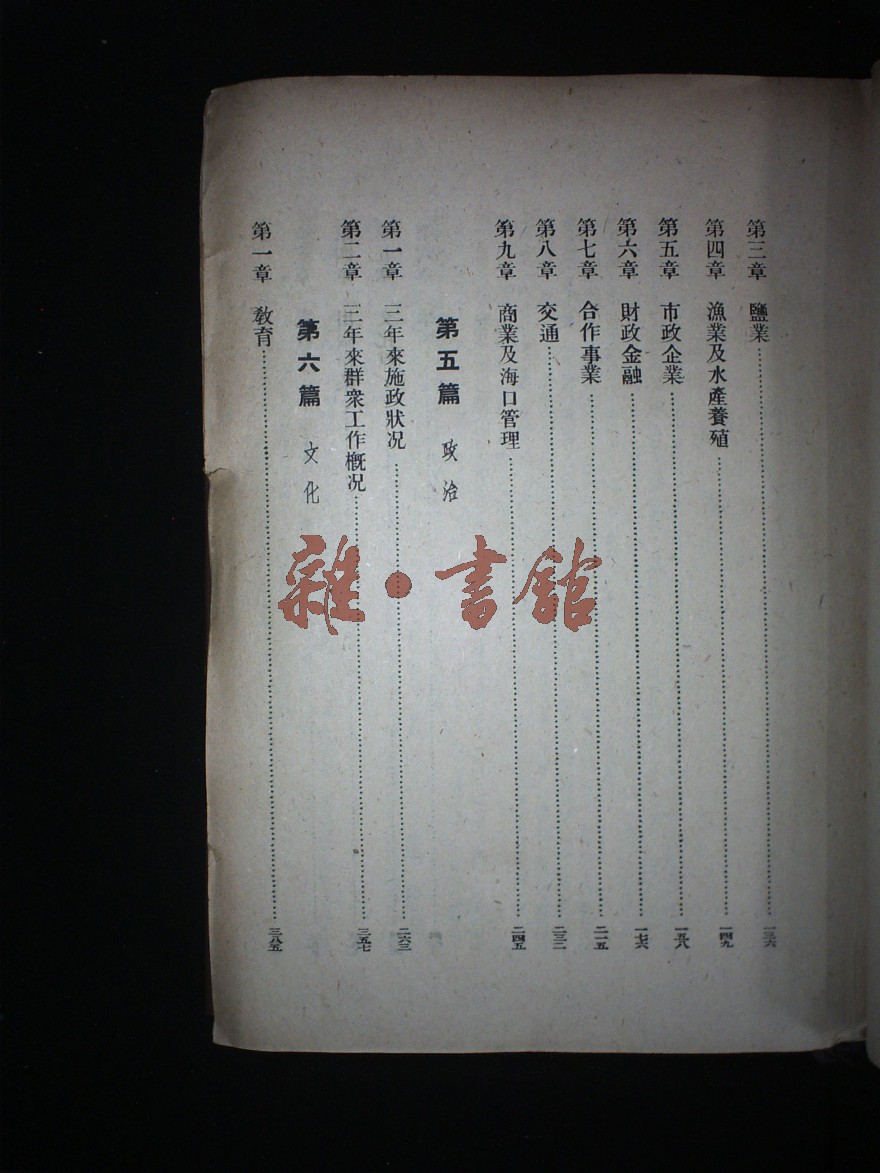 第三章 鹽業…………一三六
第四章 漁業及水產養殖…………一四九
第五章 市政企業…………一五八
第六章 財政金融…………一七六
第七章 合作事業…………二一五
第八章 交通…………二三二
第九章 商業及海口管理…………二四五
第五篇 政治
第一章 三年來施政狀况…………二六三
第二章 三年來群衆工作概况…………三五七
第六篇 文化
第一章 敎育…………三八五
雜·書館